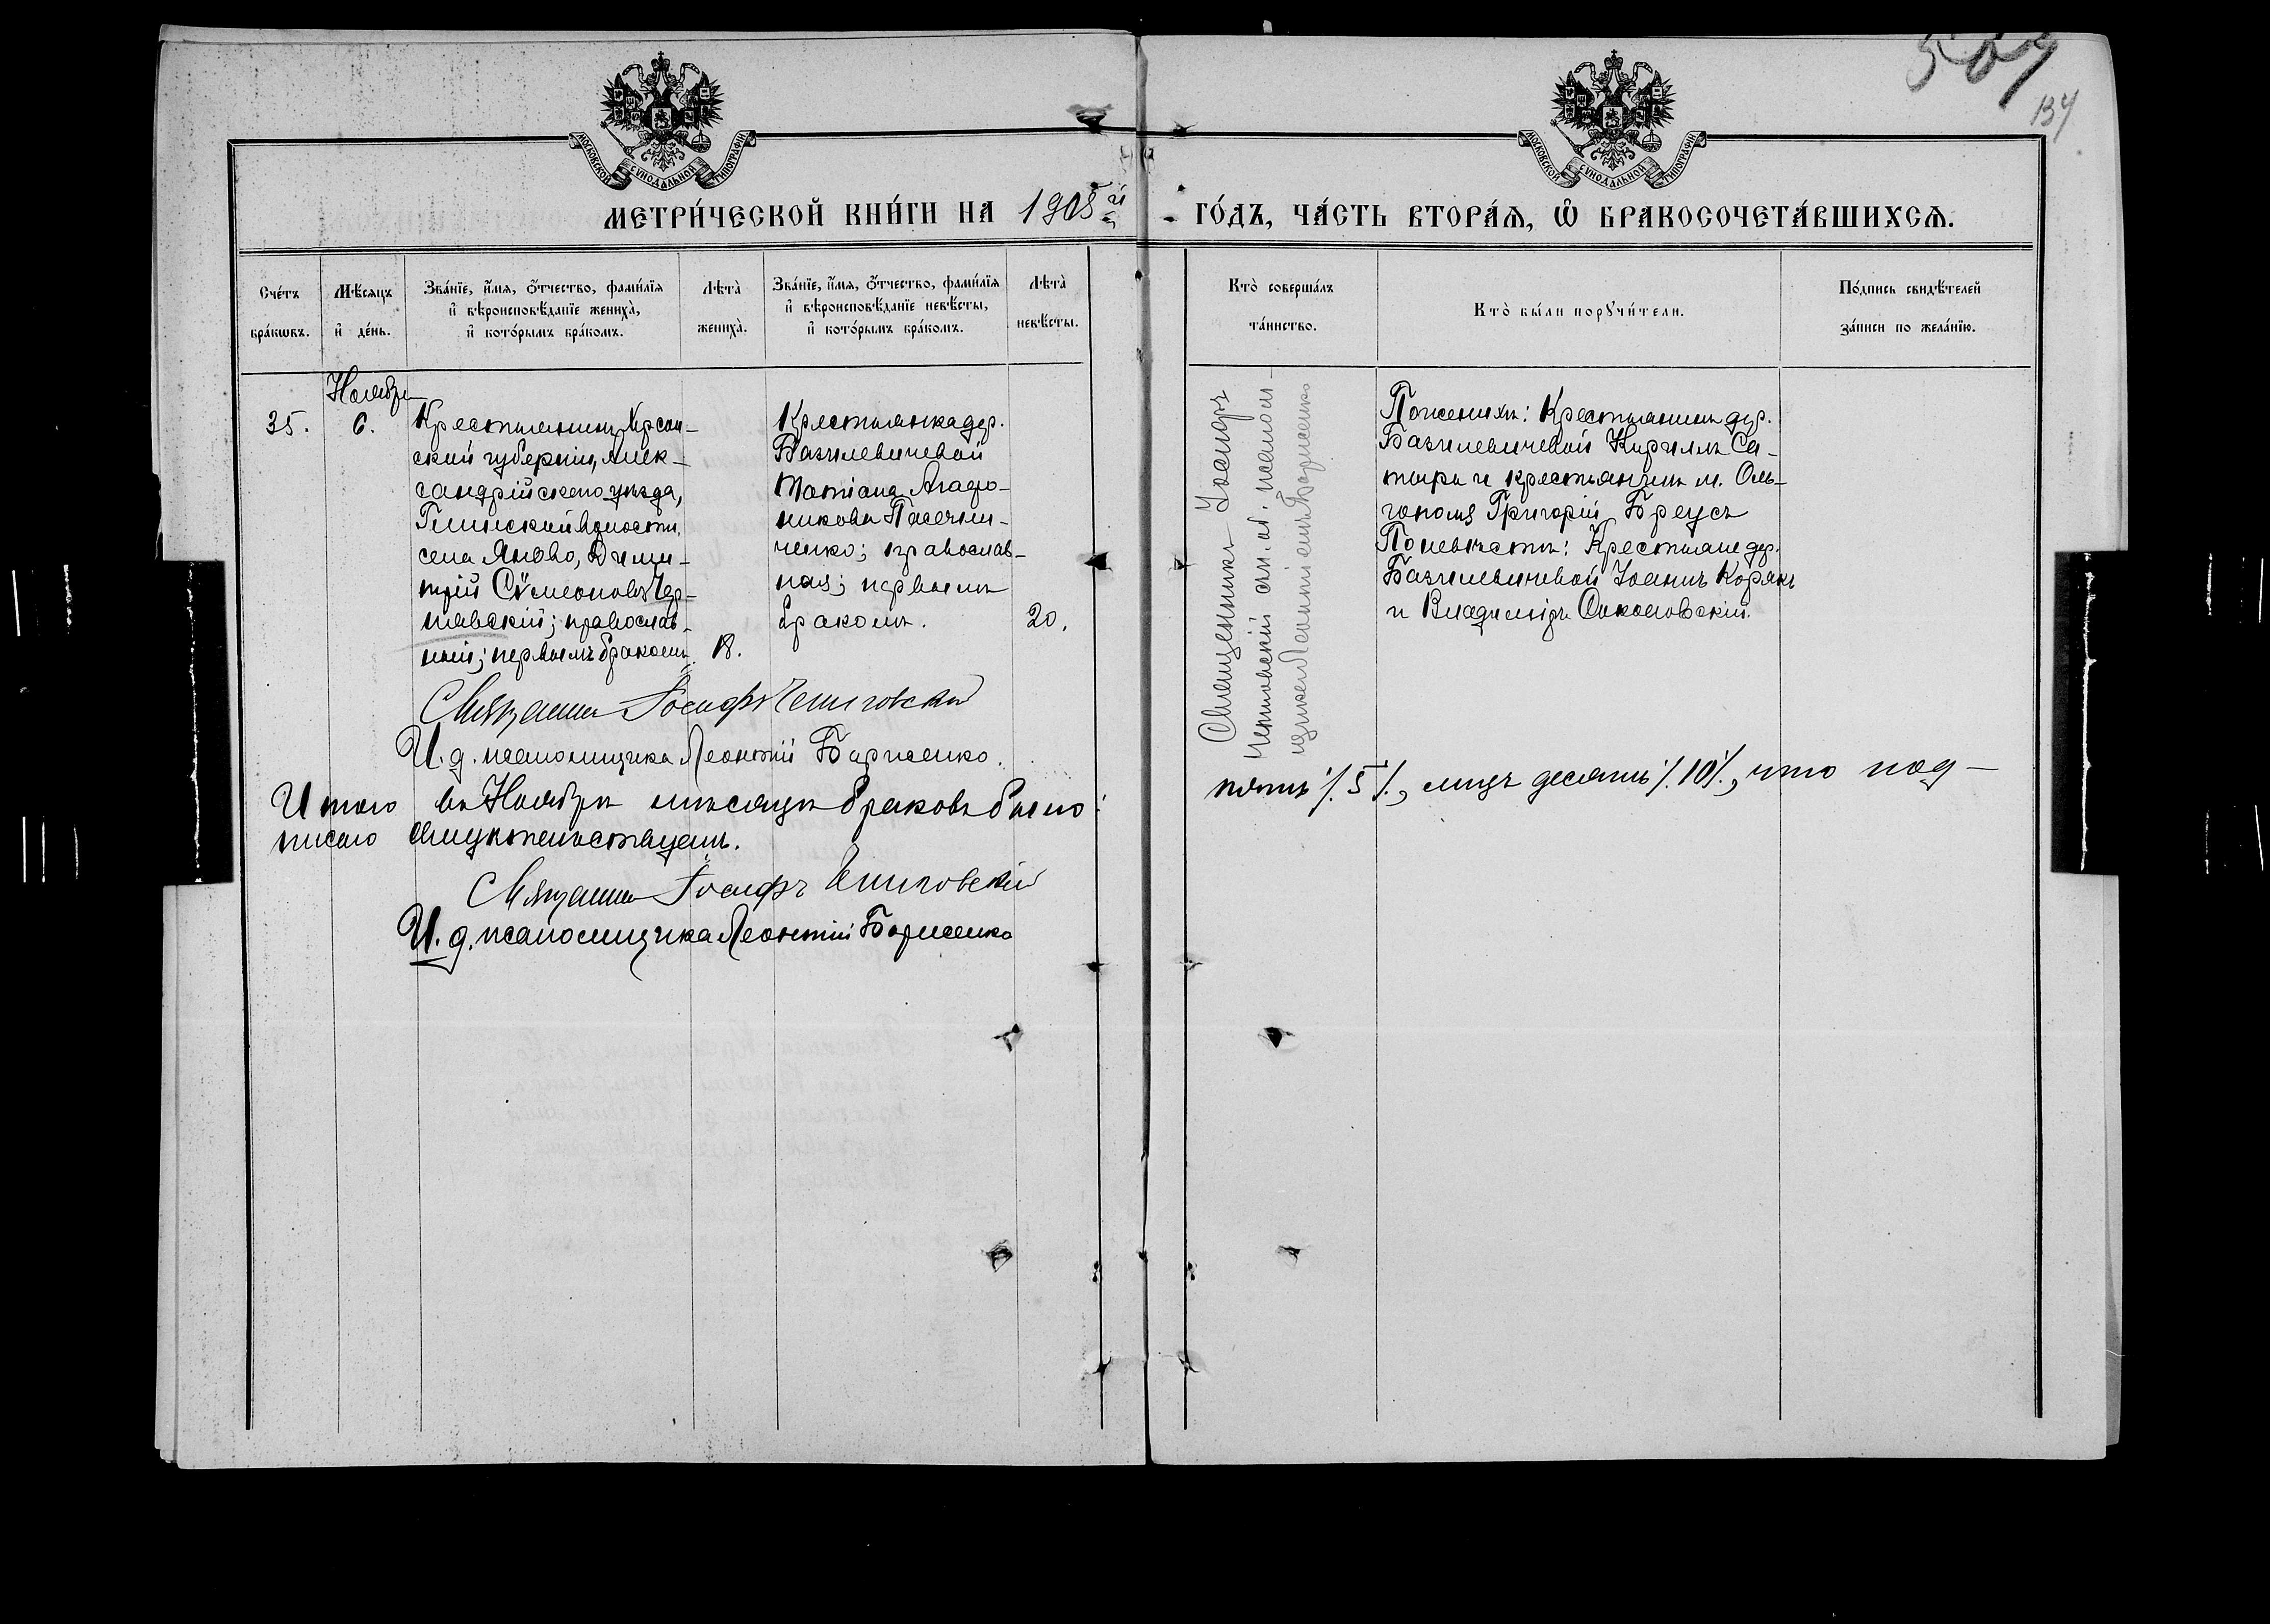 509
134
МОСКОВСКОЙ СѴНОДАЛЬНОЙ ТИПОГРАФІИ
МОСКОВСКОЙ СѴНОДАЛЬНОЙ ТИПОГРАФІИ
МЕТРИ́ЧЕСКОЙ КНИ́ГИ НА 1905й ГО́ДЪ, ЧА́СТЬ ВТОРА́Ѧ, Ѽ БРАКОСОЧЕТА́ВШИХСѦ.
Сче́тъ
бра́кѡвъ.
Мѣ́сяцъ
и҆ де́нь.
Зва́нїе, и҆́мя, ѻ҆́тчество, фами́лїя
и҆ вѣроисповѣ́данїе жениха̀,
и҆ кото́рымъ бра́комъ.
Лѣта̀
жениха̀.
Зва́нїе, и҆́мя, ѻ҆́тчество, фами́лїя
и҆ вѣроисповѣ́данїе невѣ́сты,
и҆ кото́рымъ бра́комъ.
Лѣта̀
невѣ́сты.
Кто̀ соверша́лъ
та́инство.
Кто̀ бы́ли порꙋчи́тели.
По́дпись свидѣ́телей
за́писи по жела́нїю.
Ноября
35.
6.
Крестьянинъ Херсон-
ской губерніи, Алек-
сандрійскаго уѣзда,
Глинской волости,
села Яново, Дими-
трій Сѵмеоновъ Чер-
нявскій; православ-
ный; первымъ бракомъ
18.
Крестьянка дер.
Базилевичевой
Татіана Агафо-
никова Пасечни-
ченко; православ-
ная; первымъ
бракомъ.
20.
Священникъ Іосифъ
Чепиговскій съ и. об. псалом-
щика Леонтіемъ Борисенко
По женихѣ: Крестьянинъ дер.
Базилевичевой Кириллъ Са-
тыра и крестьянинъ м. Оль-
гополя Григорій Бреусъ
По невѣстѣ: Крестьяне дер.
Базилевичевой Іоаннъ Корякъ
и Владиміръ Соколовскій.
Священникъ Іосифъ Чепиговскій
И. д. псаломщика Леонтій Борисенко.
Итого въ Ноябрѣ мѣсяцѣ браковъ было: пять /.5/., лицъ десять /.10/., что под-
писью свидѣтельствуемъ.
Священникъ Іосифъ Чепиговскій
И. д. псаломщика Леонтій Борисенко